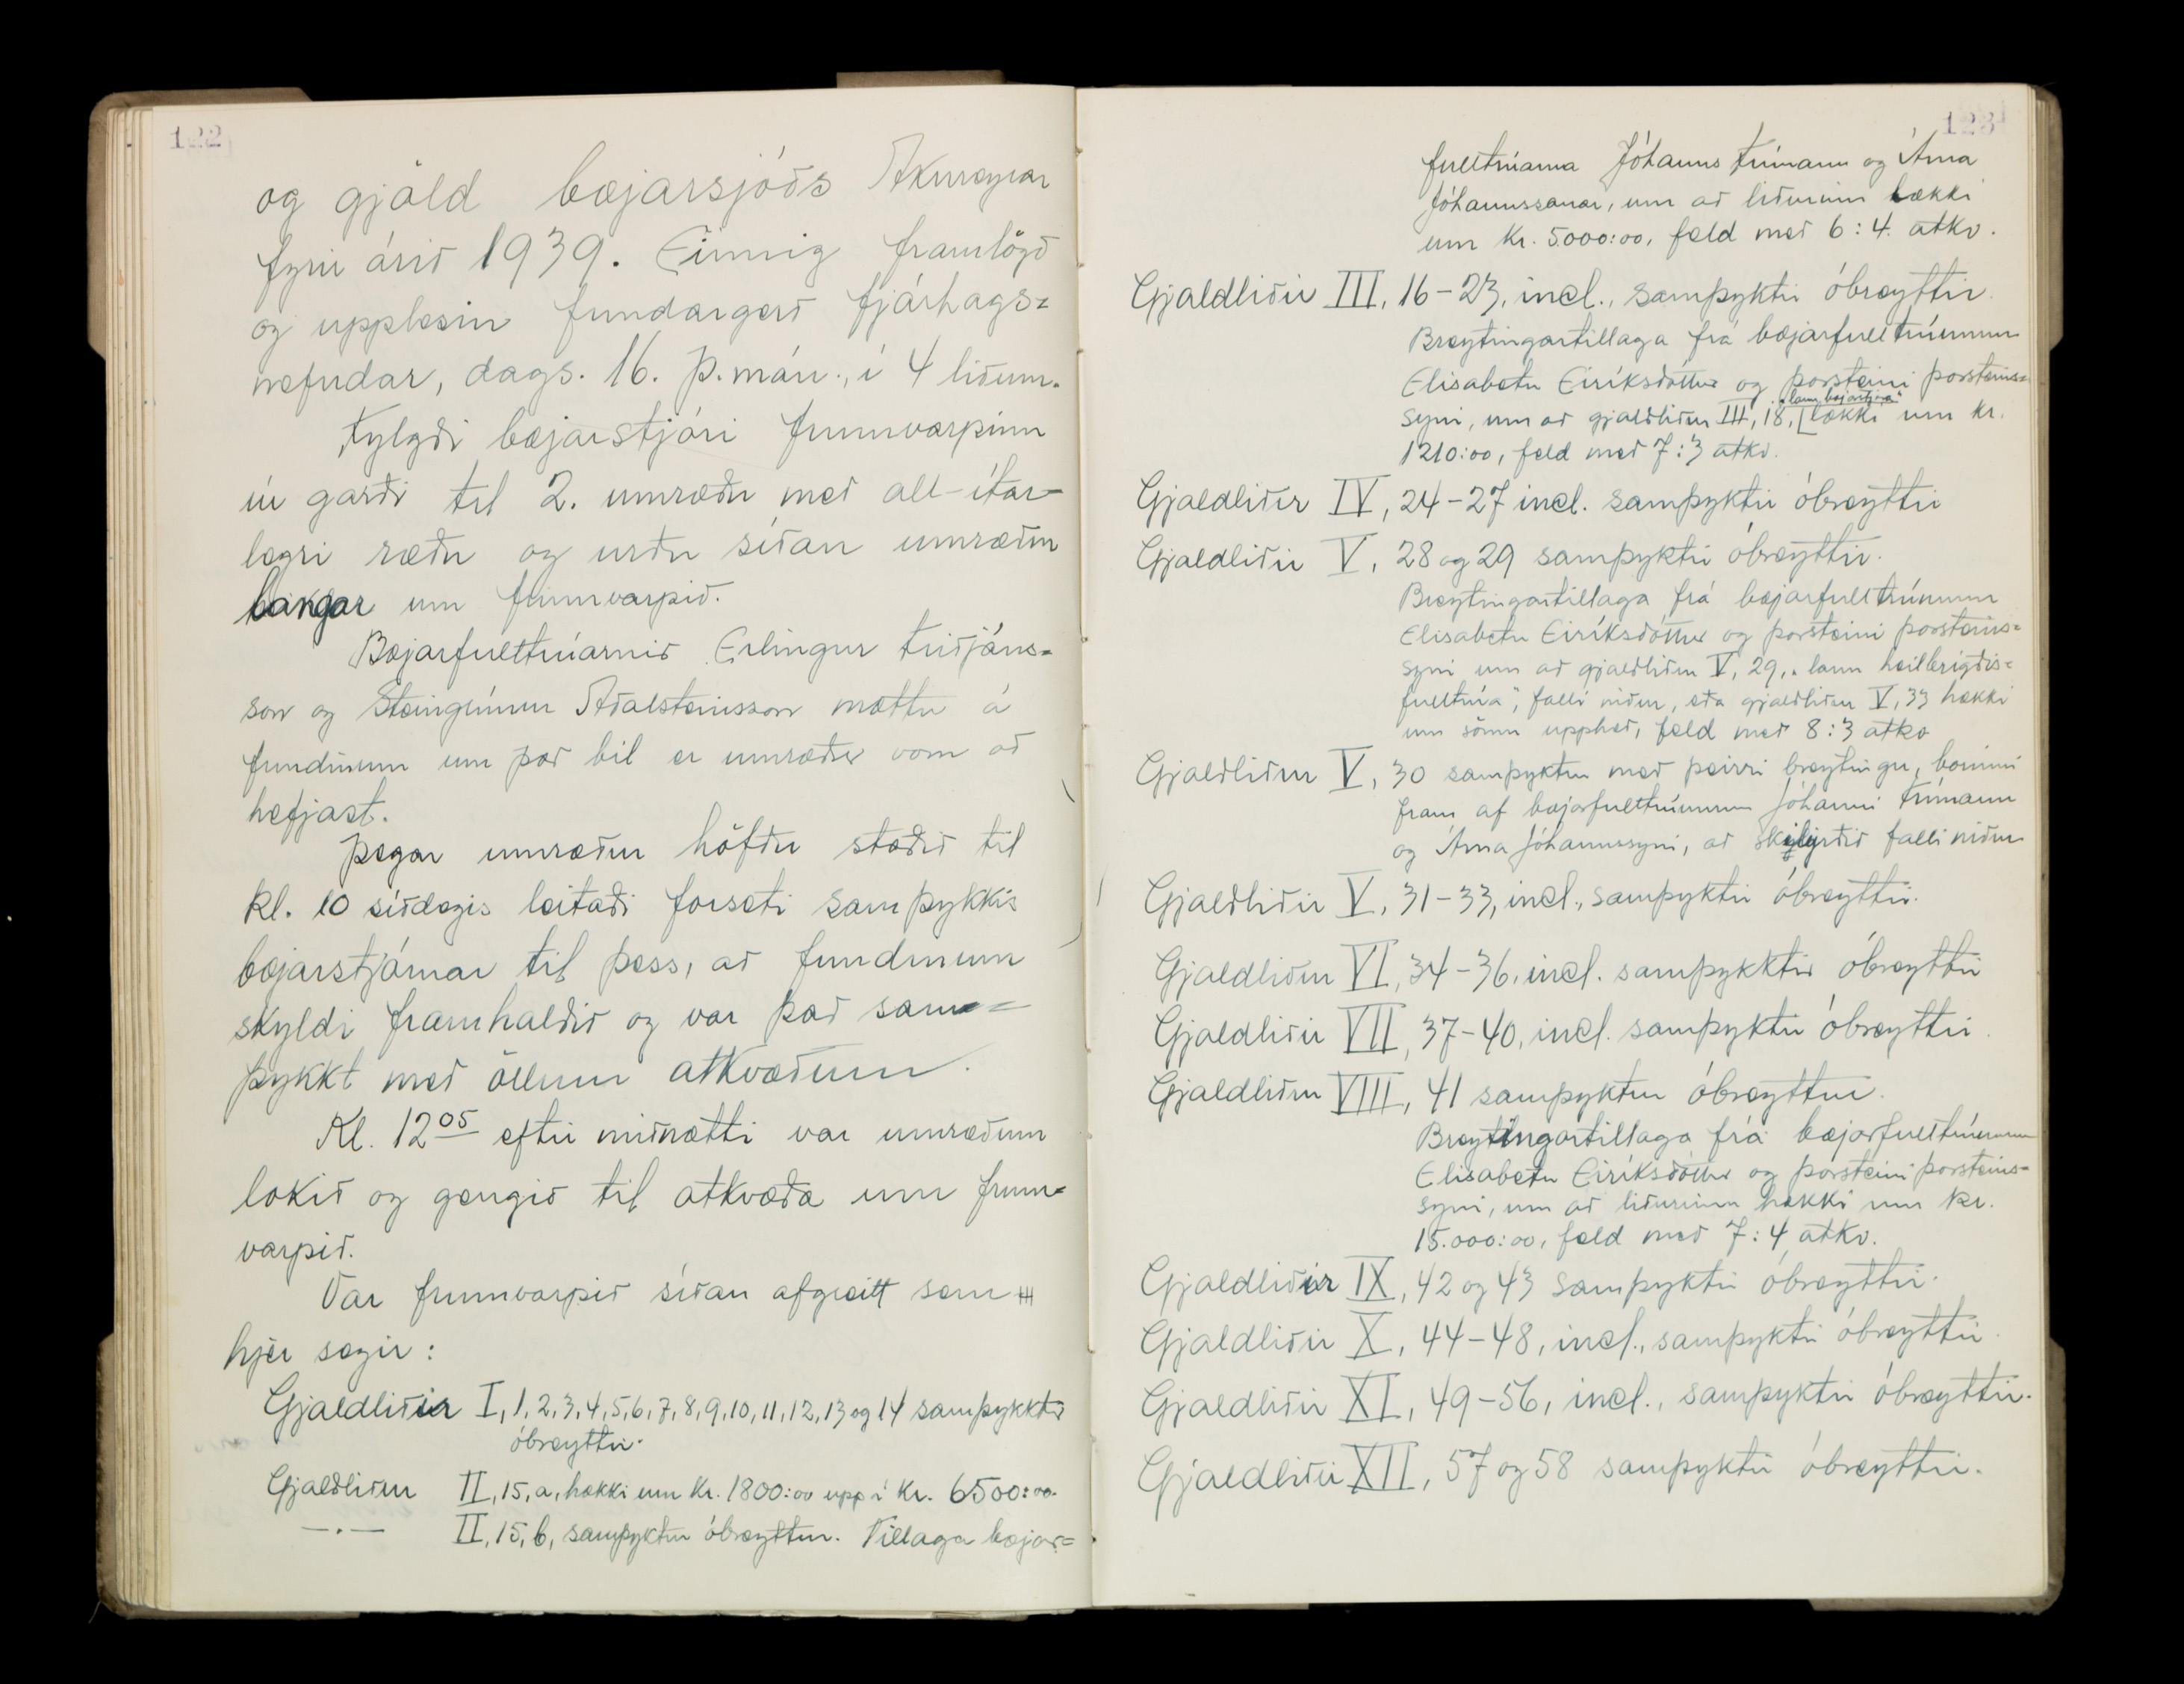 122
og gjöld bæjarsjóðs Akureyrar
fyrir árið 1939. Einnig framlögð
og upplesin fundargerð fjárhags=
nefndar, dags. 16. þ. mán., í 4 liðum.
Fylgði bæjarstjóri frumvarpinu
úr garði til 2. umræðu með all-ítar-
legri ræðu og urðu síðan umræður
langar um frumvarpið.
Bæjarfulltrúarnir Erlingur Friðjóns=
son og Steingrímur Aðalsteinsson mættu á
fundinum um það bil er umræður voru að
hefjast.
Þegar umræður höfðu staðið til
kl. 10 síðdegis leitaði forseti samþykkis
bæjarstjórnar til þess, að fundinum
skyldi framhaldið og var það sam=
þykkt með öllum atkvæðum.
Kl. 12 05 eftir miðnætti var umræðum
lokið og gengið til atkvæða um frum=
varpið.
Var frumvarpið síðan afgreitt sem
hjer segir:
Gjaldliðir I, 1, 2, 3, 4, 5, 6, 7, 8, 9, 10, 11, 12, 13 og 14 samþykktir
óbreyttir.
Gjaldliður II, 15, a, hækki um kr. 1800:00 upp í kr. 6500:00.
—.— II, 15, b, samþyktur óbreyttur. Tillaga bæjar=
123
fulltrúanna Jóhanns Frímann og Árna
Jóhannssonar, um að liðurinn lækki
um kr. 5.000:00, feld með 6:4. atkv.
Gjaldliðir III, 16-23, incl., samþyktir óbreyttir.
Breytingartillaga frá bæjarfulltrúunum
Elisabetu Eiríksdóttur og Þorsteini Þorsteins=
„laun bæjarstjóra"
syni, um að gjaldliður III, 18, lækki um kr.
1210:00, feld með 7:3 atkv.
Gjaldliðir IV, 24-27 incl. samþyktir óbreyttir
Gjaldliðir V, 28 og 29 samþyktir óbreyttir.
Breytingartillaga frá bæjarfulltrúunum
Elisabetu Eiríksdóttur og Þorsteini Þorsteins=
syni um að gjaldliður V, 29, „laun heilbrigðis=
fulltrúa", falli niður, eða gjaldliður V, 33 hækki
um sömu upphæð, feld með 8:3 atkv
Gjaldliður V, 30 samþyktur með þeirri breytingu, borinni
fram af bæjarfulltrúunum Jóhanni Frímann
og Árna Jóhannssyni, að skilyrðið falli niður
Gjaldliðir V, 31-33, incl., samþyktir óbreyttir.
Gjaldliður VI, 34-36, incl. samþykktir óbreyttir
Gjaldliðir VII, 37-40, incl. samþyktir óbreyttir.
Gjaldliður VIII, 41 samþyktur óbreyttur.
Breytingartillaga frá bæjarfulltrúunum
Elisabetu Eiríksdóttur og Þorsteini Þorsteins=
syni, um að liðurinn hækki um kr.
15.000:00, feld með 7:4 atkv.
Gjaldliðir IX, 42 og 43 samþyktir óbreyttir.
Gjaldliðir X, 44-48, incl., samþyktir óbreyttir.
Gjaldliðir XI, 49-56, incl., samþyktir óbreyttir.
Gjaldliðir XII, 57 og 58 samþyktir óbreyttir.